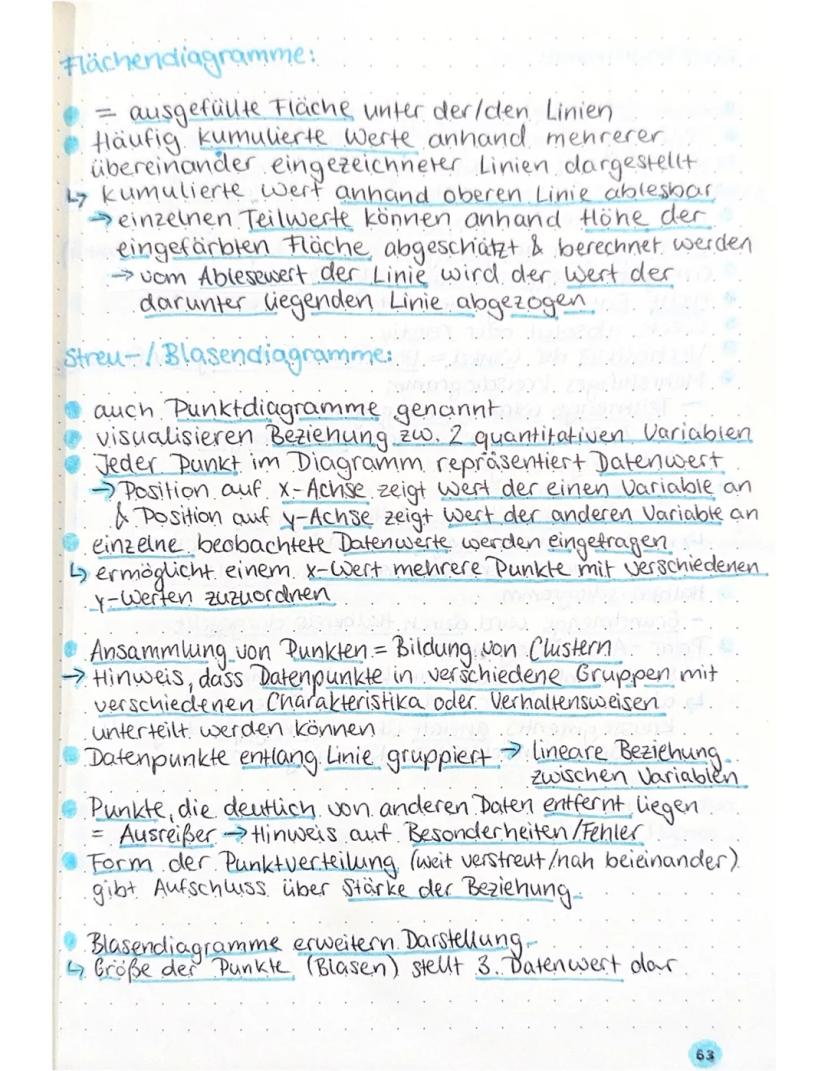 Flächendiagramme:
= ausgefüllte Fläche unter der/den Linien
Häufig kumulierte Werte anhand mehrerer
übereinander eingezeichneter Linien dargestellt
↳ kumulierte Wert anhand oberen Linie ablesbar
→ einzelnen Teilwerte können anhand Höhe der
eingefärbten Fläche abgeschätzt & berechnet werden
→ vom Ablesewert der Linie wird der Wert der
darunter liegenden Linie abgezogen
Streu-/Blasendiagramme:
auch Punktdiagramme genannt
visualisieren Beziehung zw. 2 quantitativen Variablen
Jeder Punkt im Diagramm repräsentiert Datenwert
→ Position auf x-Achse zeigt Wert der einen Variable an
& Position auf y-Achse zeigt Wert der anderen Variable an
einzelne beobachtete Datenwerte werden eingetragen
↳ ermöglicht einem x-Wert mehrere Punkte mit verschiedenen
y-Werten zuzuordnen
Ansammlung von Punkten = Bildung von Clustern
→ Hinweis, dass Datenpunkte in verschiedene Gruppen mit
verschiedenen Charakteristika oder Verhaltensweisen
unterteilt werden können
Datenpunkte entlang Linie gruppiert → lineare Beziehung
zwischen Variablen
Punkte, die deutlich von anderen Daten entfernt liegen
= Ausreißer → Hinweis auf Besonderheiten/Fehler
Form der Punktverteilung (weit verstreut/nah beieinander)
gibt Aufschluss über Stärke der Beziehung
Blasendiagramme erweitern Darstellung
↳ Größe der Punkte (Blasen) stellt 3. Datenwert dar
63